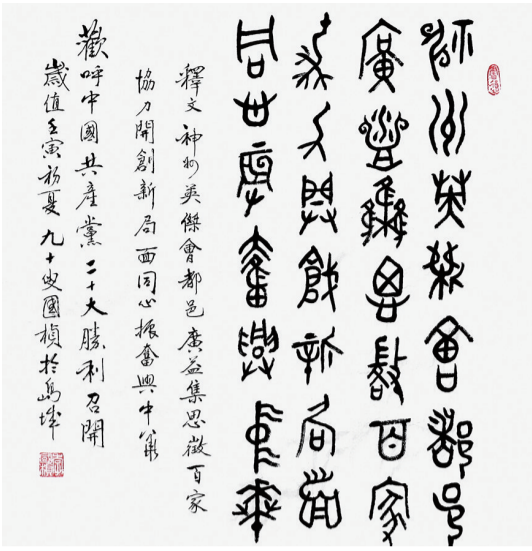 神州英傑會都邑
廣益集思徵百家
協力開創新局面
同心振奮興中華
釋文 神州英傑會都邑廣益集思徵百家
協力開創新局面同心振奮興中華
歡呼中國共產黨二十大勝利召開
歲值壬寅初夏九十叟國楨於島城